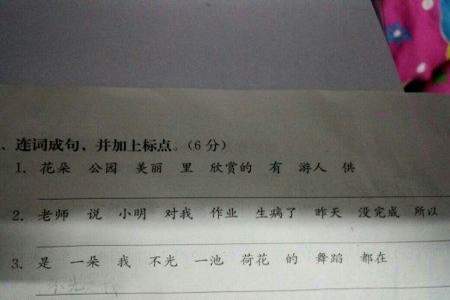 、连词成句，并加上标点。（6分）
1. 花朵 公园 美丽 里 欣赏的 有 游人 供
2. 老师 说 小明 对我 作业 生病了 昨天 没完成 所以
3. 是 一朵 我 不光 一池 荷花 的 舞蹈 都在